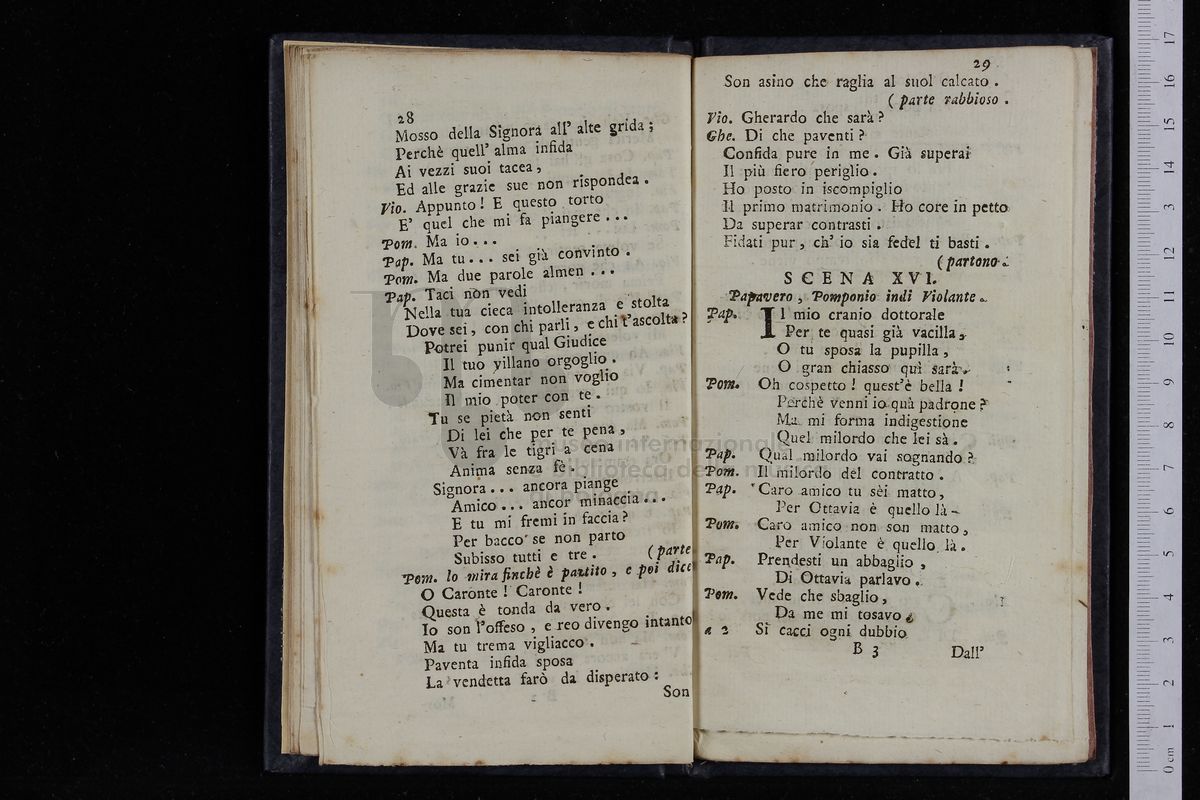 28
Mosso della Signora all' alte grida ;
Perchè quell' alma infida
Ai vezzi suoi tacea ,
Ed alle grazie sue non rispondea .
Vio. Appunto ! E questo torto
E' quel che mi fa piangere . . .
Pom. Ma io . . .
Pap. Ma tu . . . sei già convinto .
Pom. Ma due parole almen . . .
Pap. Taci non vedi
Nella tua cieca intolleranza e stolta
Dove sei , con chi parli , e chi t'ascolta ?
Potrei punir qual Giudice
Il tuo villano orgoglio .
Ma cimentar non voglio
Il mio poter con te .
Tu se pietà non senti
Di lei che per te pena ,
Và fra le tigri a cena
Anima senza fè .
Signora . . . ancora piange
Amico . . . ancor minaccia . . .
E tu mi fremi in faccia ?
Per bacco se non parto
Subisso tutti e tre . (parte
Pom. lo mira finchè è partito , e poi dice
O Caronte ! Caronte !
Questa è tonda da vero .
Io son l'offeso , e reo divengo intanto
Ma tu trema vigliacco .
Paventa infida sposa
La vendetta farò da disperato :
Son
29
Son asino che raglia al suol calcato .
( parte rabbioso .
Vio. Gherardo che sarà ?
Ghe. Di che paventi ?
Confida pure in me . Già superai
Il più fiero periglio .
Ho posto in iscompiglio
Il primo matrimonio . Ho core in petto
Da superar contrasti .
Fidati pur , ch' io sia fedel ti basti .
(partono .
SCENA XVI.
Papavero , Pomponio indi Violante .
Pap. Il mio cranio dottorale
Per te quasi già vacilla ,
O tu sposa la pupilla ,
O gran chiasso quì sarà .
Pom. Oh cospetto ! quest'è bella !
Perchè venni io quà padrone ?
Ma mi forma indigestione
Quel milordo che lei sà .
Pap. Qual milordo vai sognando ?
Pom. Il milordo del contratto .
Pap. Caro amico tu sèi matto ,
Per Ottavia è quello là -
Pom. Caro amico non son matto ,
Per Violante è quello là .
Pap. Prendesti un abbaglio ,
Di Ottavia parlavo .
Pom. Vede che sbaglio ,
Da me mi tosavo ;
a 2 Si cacci ogni dubbio
B 3 Dall'
museo internazionale
biblioteca della musica
di bologna
0 cm 1 2 3 4 5 6 7 8 9 10 11 12 13 14 15 16 17